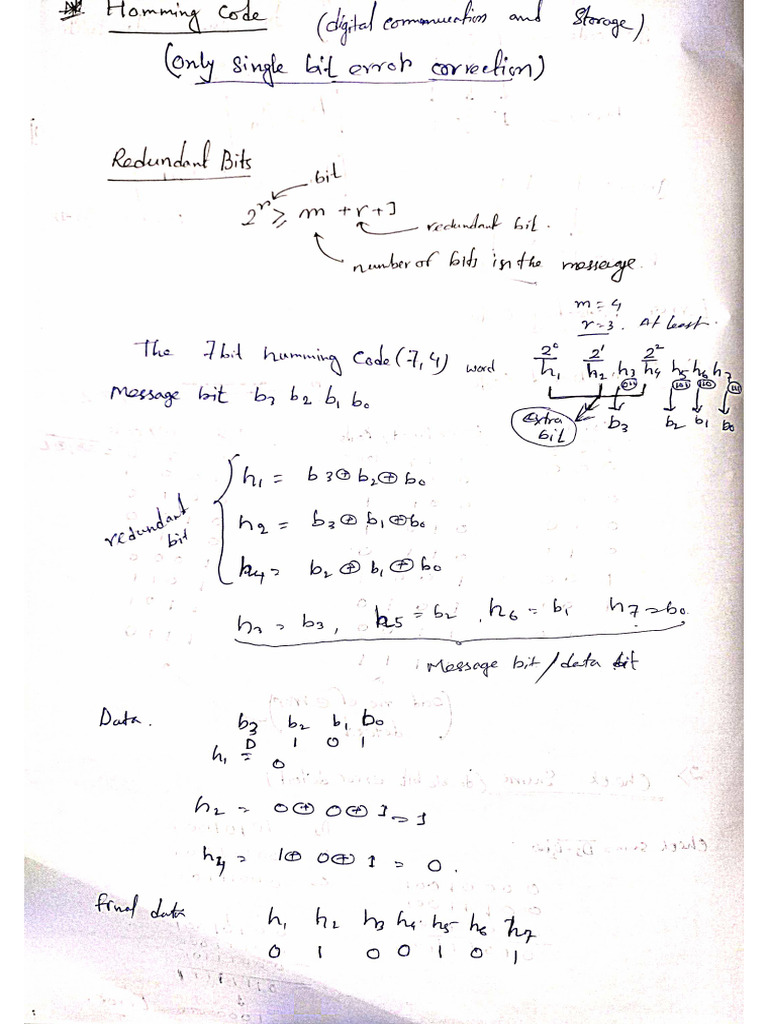 Homming Code (digital communication and Storage)
(only single bit error correction)
Redundant Bits
bit
2^r ≥ m + r + 1
redundant bit.
number of bits in the message.
m = 4
r = 3. At least.
The 7bit humming Code (7,4) word
2^0 2^1 2^2
h1 h2 h3 h4 h5 h6 h7
Message bit b3 b2 b1 b0
extra bit
b3 b2 b1 b0
redundant bit
h1 = b3 ⊕ b2 ⊕ b0
h2 = b3 ⊕ b1 ⊕ b0
h4 = b2 ⊕ b1 ⊕ b0
h3 = b3, h5 = b2, h6 = b1 h7 = b0
Message bit / data bit
Data. b3 b2 b1 b0
0 1 0 1
h1 = 0
h2 = 0 ⊕ 0 ⊕ 1 = 1
h4 = 1 ⊕ 0 ⊕ 1 = 0.
final data h1 h2 h3 h4 h5 h6 h7
0 1 0 0 1 0 1